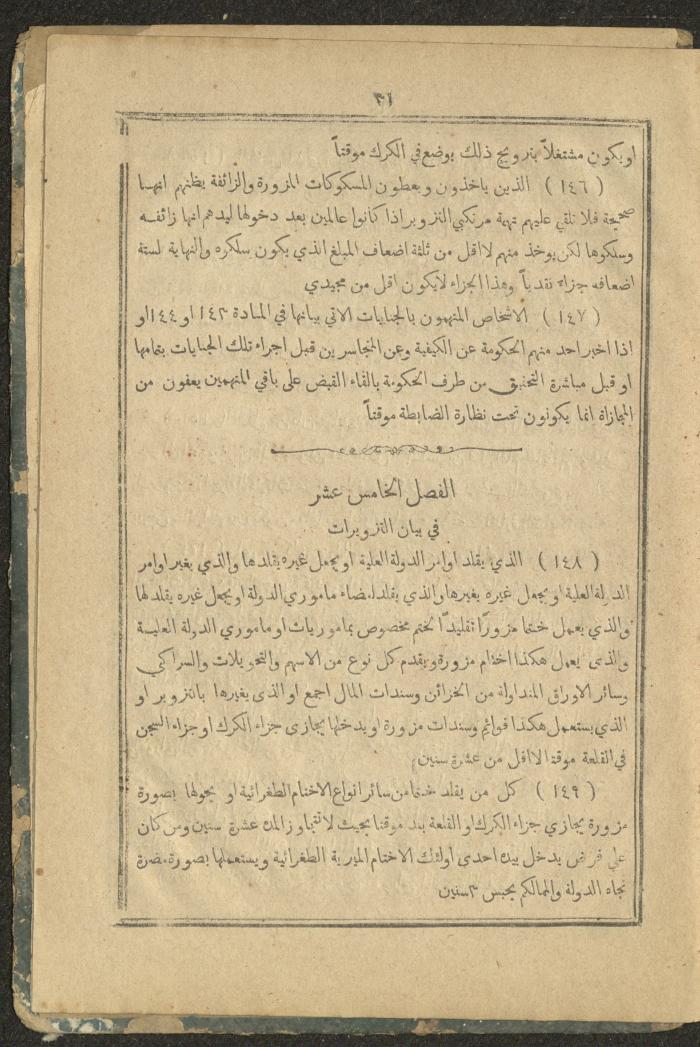 ٣١
او يكون مشتغلاً بترويج ذلك يوضع في الكرك موقتاً
( ١٤٦ ) الذين ياخذون ويعطون المسكوكات المزورة والزائفة بظنهم انهــا
صحيحة فلا تلقي عليهم تهمة مرتكبي التزوير اذا كانوا عالمين بعد دخولها ليدهم انها زائفــه
وسلكوها لكن يوخذ منهم لااقل من ثلثة اضعاف المبلغ الذي يكون سلكره والنهاية لستة
اضعافه جزاء نقدياً وهذا الجزاء لايكون اقل من مجيدي
( ١٤٧ ) الاشخاص المتهمون بالجنايات الاتي بيانها في المــادة ١٤٣ او ١٤٤ او
اذا اخبر احد منهم الحكومة عن الكيفية وعن المتجاسرين قبل اجراء تلك الجنايات بتمامها
او قبل مباشرة التحقيق من طرف الحكومة بالقاء القبض على باقي المتهمين يعفون من
المجازاة انما يكونون تحت نظارة الضابطة موقتاً
الفصل الخامس عشر
في بيان التزويرات
( ١٤٨ ) الذي يقلد اوامر الدولة العلية او يجعل غيره يقلدها والذي يغير اوامر
الدولة العلية او يجعل غيره يغيرها والذي يقلد امضاء ماموري الدولة او يجعل غيره يقلد لها
والذي يعمل ختما مزورًا تقليدًا لختم مخصوص بماموريات او ماموري الدولة العليــة
والذى يعمل هكذا اختام مزورة ويقدم كل نوع من الاسهم والتحويلات والسراكي
وسائر الاوراق المتداولة من الخزائن وسندات المال اجمع او الذى يغيرها بالتزوير او
الذي يستعمل هكذا قوائم وسندات مزورة او يدخلها يجازى جزاء الكرك او جزاء السجن
في القلعة موقة الا اقل من عشرة سنين
( ١٤٩ ) كل من يقلد ختما من سائر انواع الاختام الطغرائية او يحولها بصورة
مزورة يجازي جزاء الكرك او القلعة بند موقتا بحيث لا تتجاوز المدة عشرة سنين ومن كان
علي فرض يدخل بيده احدى اولئك الاختام الميرية الطغرائية ويستعملها بصورة مضرة
تجاه الدولة والممالكم يحبس ٣ سنين